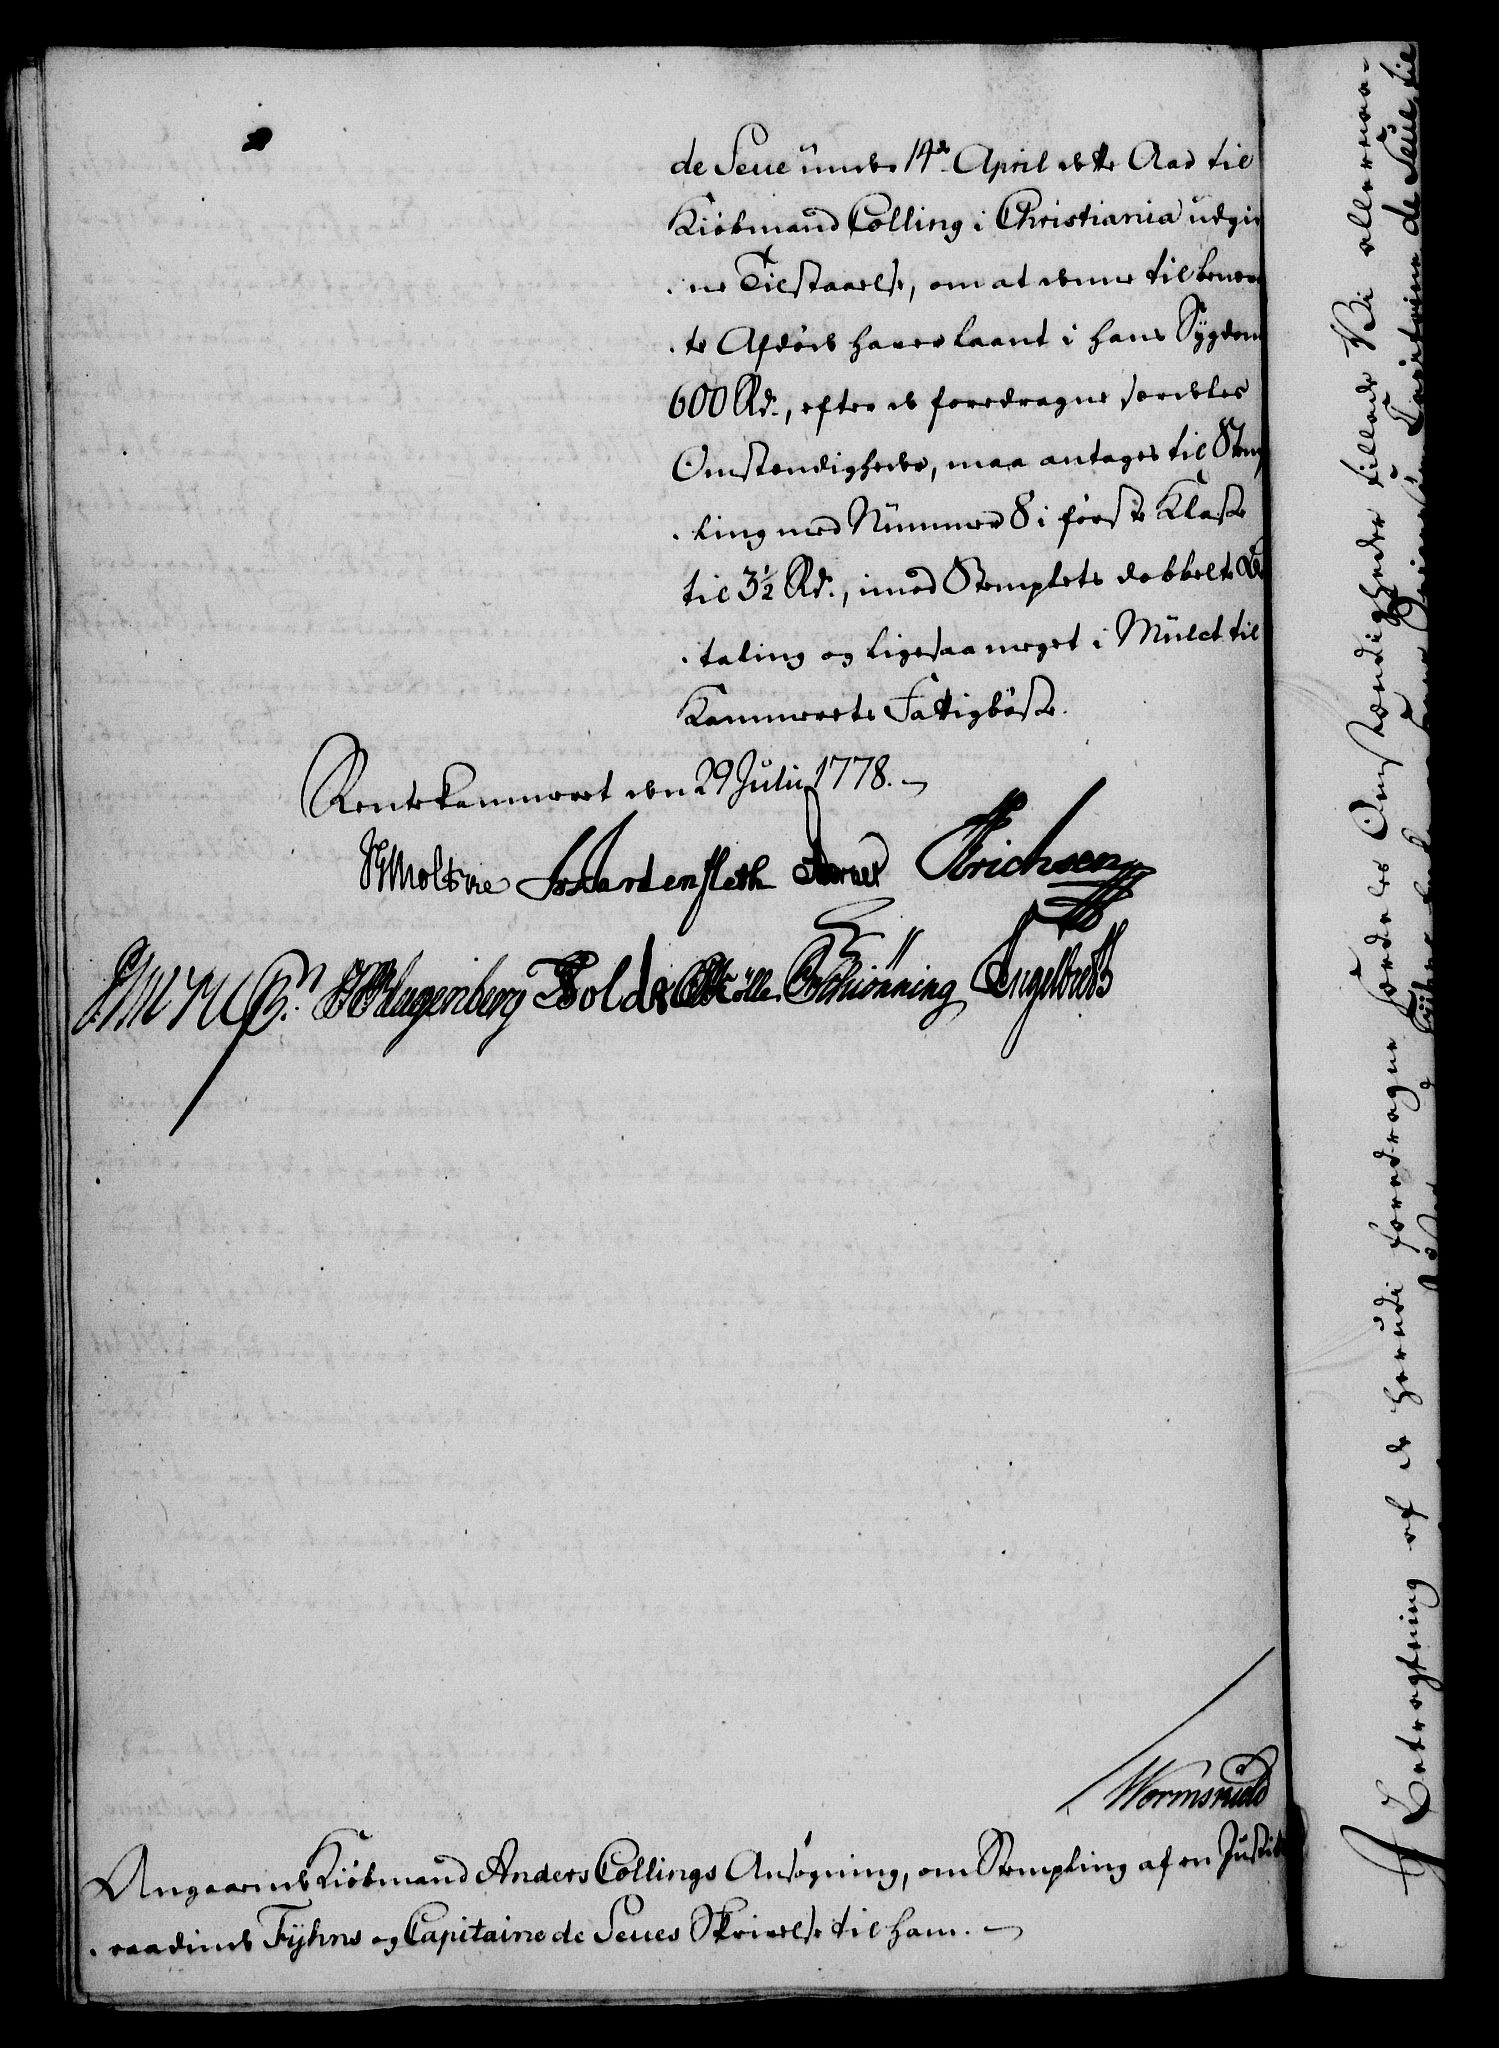 de Seue under 14de April dette Aar til
Kiöbmand Colling i Christiania udgiv
ne Tilstaaelse, om at denne til benæv
te Afdöde haver laant i hans Sygdom
600 Rd., efter de foredragne særdeles
Omstændigheder, maa antages til Stemp
ling med Nummer 8 i förste Klasse
til 3½ Rd., imod Stemplets dobbelte Be
taling og ligesaa meget i Mulct til
Kammerets Fattigbösse.
Rentekammeret den 29 Julii 1778.
Moltke Hardenfleth Erichsen
Klagenberg Holde Schiönning Engelbreth
Wormskiold
Angaaende Kiöbmand Anders Collings Ansögning, om Stempling af en Justits
raadinde Fyhns og Capitaine de Seues Skrivelse til ham.
I Betragtning af de herudi foredragne særdeles Omstændigheder tillade Vi allernaa-
Capitaine de Seue til